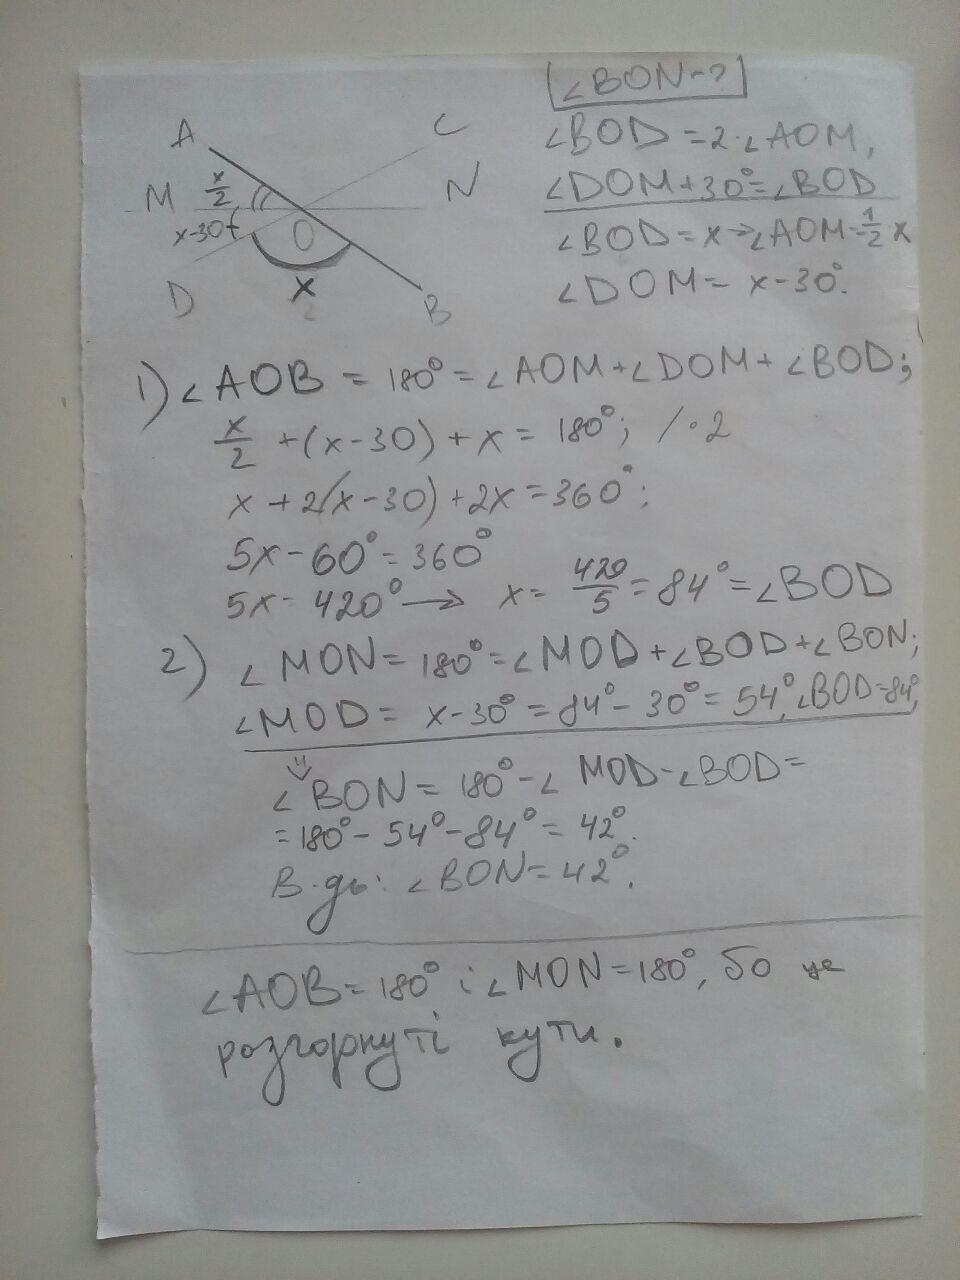 ∠BON-?
A
C
M
x/2
N
x-30
O
D
x
B
∠BOD = 2·∠AOM,
∠DOM+30°=∠BOD
∠BOD = x → ∠AOM = 1/2 x
∠DOM = x - 30°.
1) ∠AOB = 180° = ∠AOM + ∠DOM + ∠BOD;
x/2 + (x-30) + x = 180°; / · 2
x + 2(x-30) + 2x = 360°;
5x - 60° = 360°
5x = 420° → x = 420/5 = 84° = ∠BOD
2) ∠MON = 180° = ∠MOD + ∠BOD + ∠BON;
∠MOD = x-30° = 84° - 30° = 54°, ∠BOD = 84°,
⇓
∠BON = 180° - ∠MOD - ∠BOD =
= 180° - 54° - 84° = 42°.
В-дь: ∠BON = 42°.
∠AOB = 180° і ∠MON = 180°, бо це
розгорнуті кути.